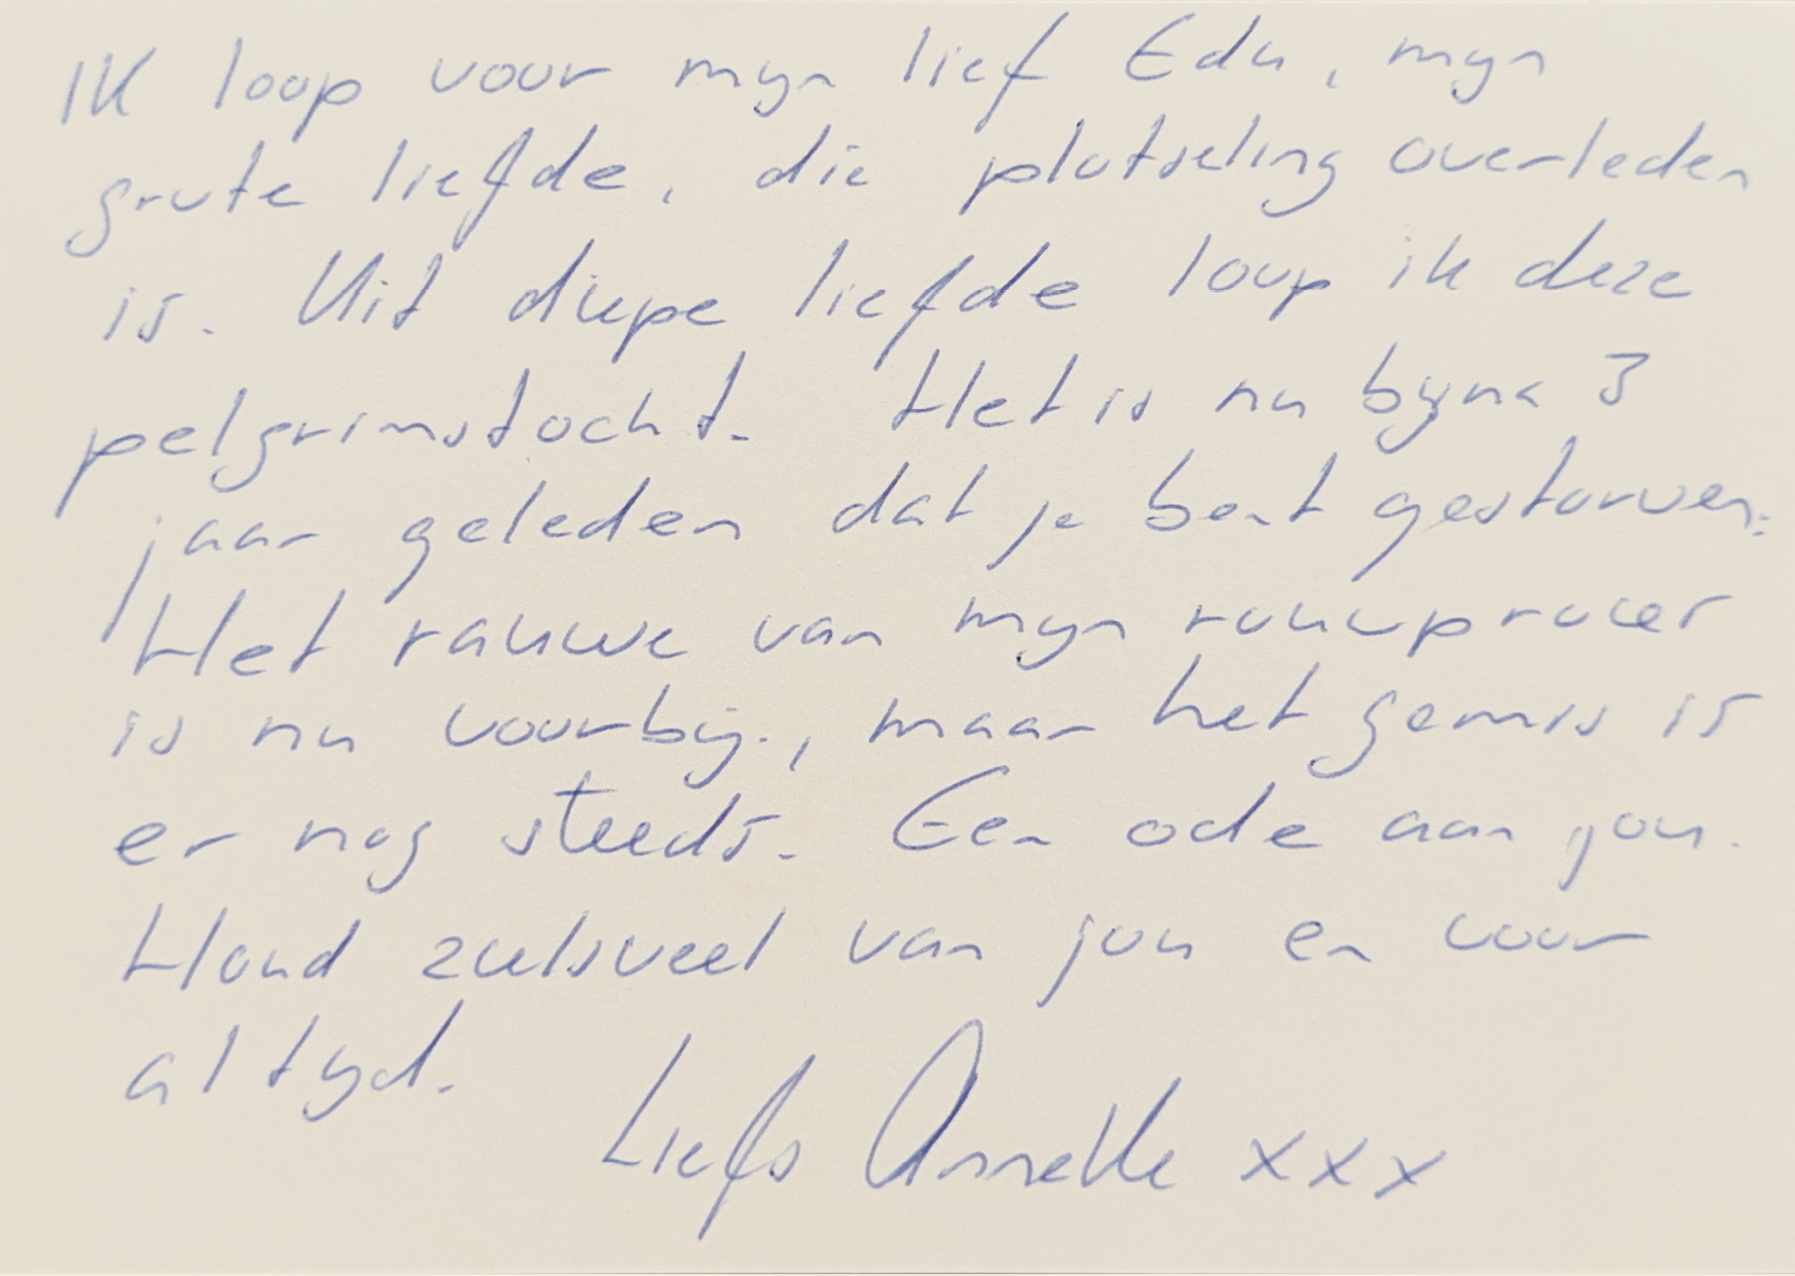 Ik loop voor mijn lief Edu, mijn
grote liefde, die plotseling overleden
is. Uit diepe liefde loop ik deze
pelgrimstocht. Het is nu bijna 3
jaar geleden dat je bent gestorven.
Het rauwe van mijn rouwproces
is nu voorbij, maar het gemis is
er nog steeds. Een ode aan jou.
Houd zielsveel van jou en voor
altijd.
Liefs Annette xxx